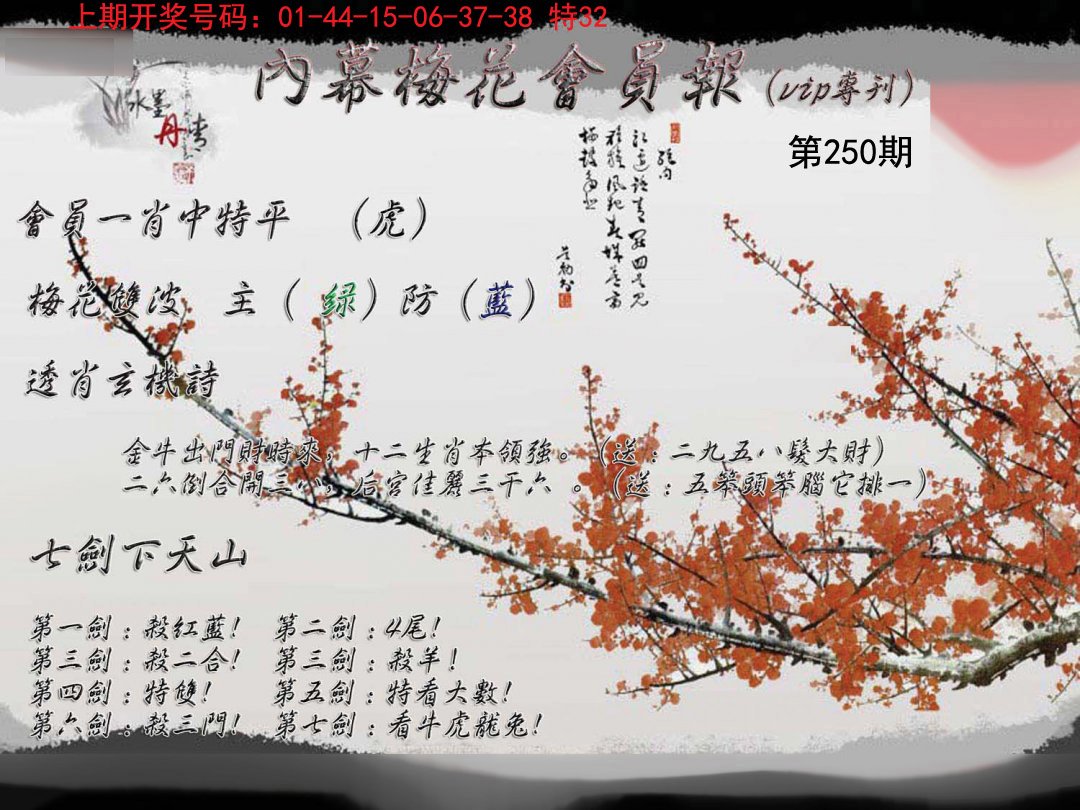 上期开奖号码：01-44-15-06-37-38 特32
內幕梅花會員報（vip專刊）
水墨丹青
第250期
會員一肖中特平 （虎）
梅花雙波 主（绿）防（藍）
透肖玄機詩
金牛出門財時來，十二生肖本領強。（送：二九五八髮大財）
二六倒合開三八，后宮佳麗三千六 。（送：五笨頭笨腦它排一）
七劍下天山
第一劍：殺紅藍！ 第二劍：4尾！
第三劍：殺二合！ 第三劍：殺羊！
第四劍：特雙！ 第五劍：特看大數！
第六劍：殺三門！ 第七劍：看牛虎龍兔！